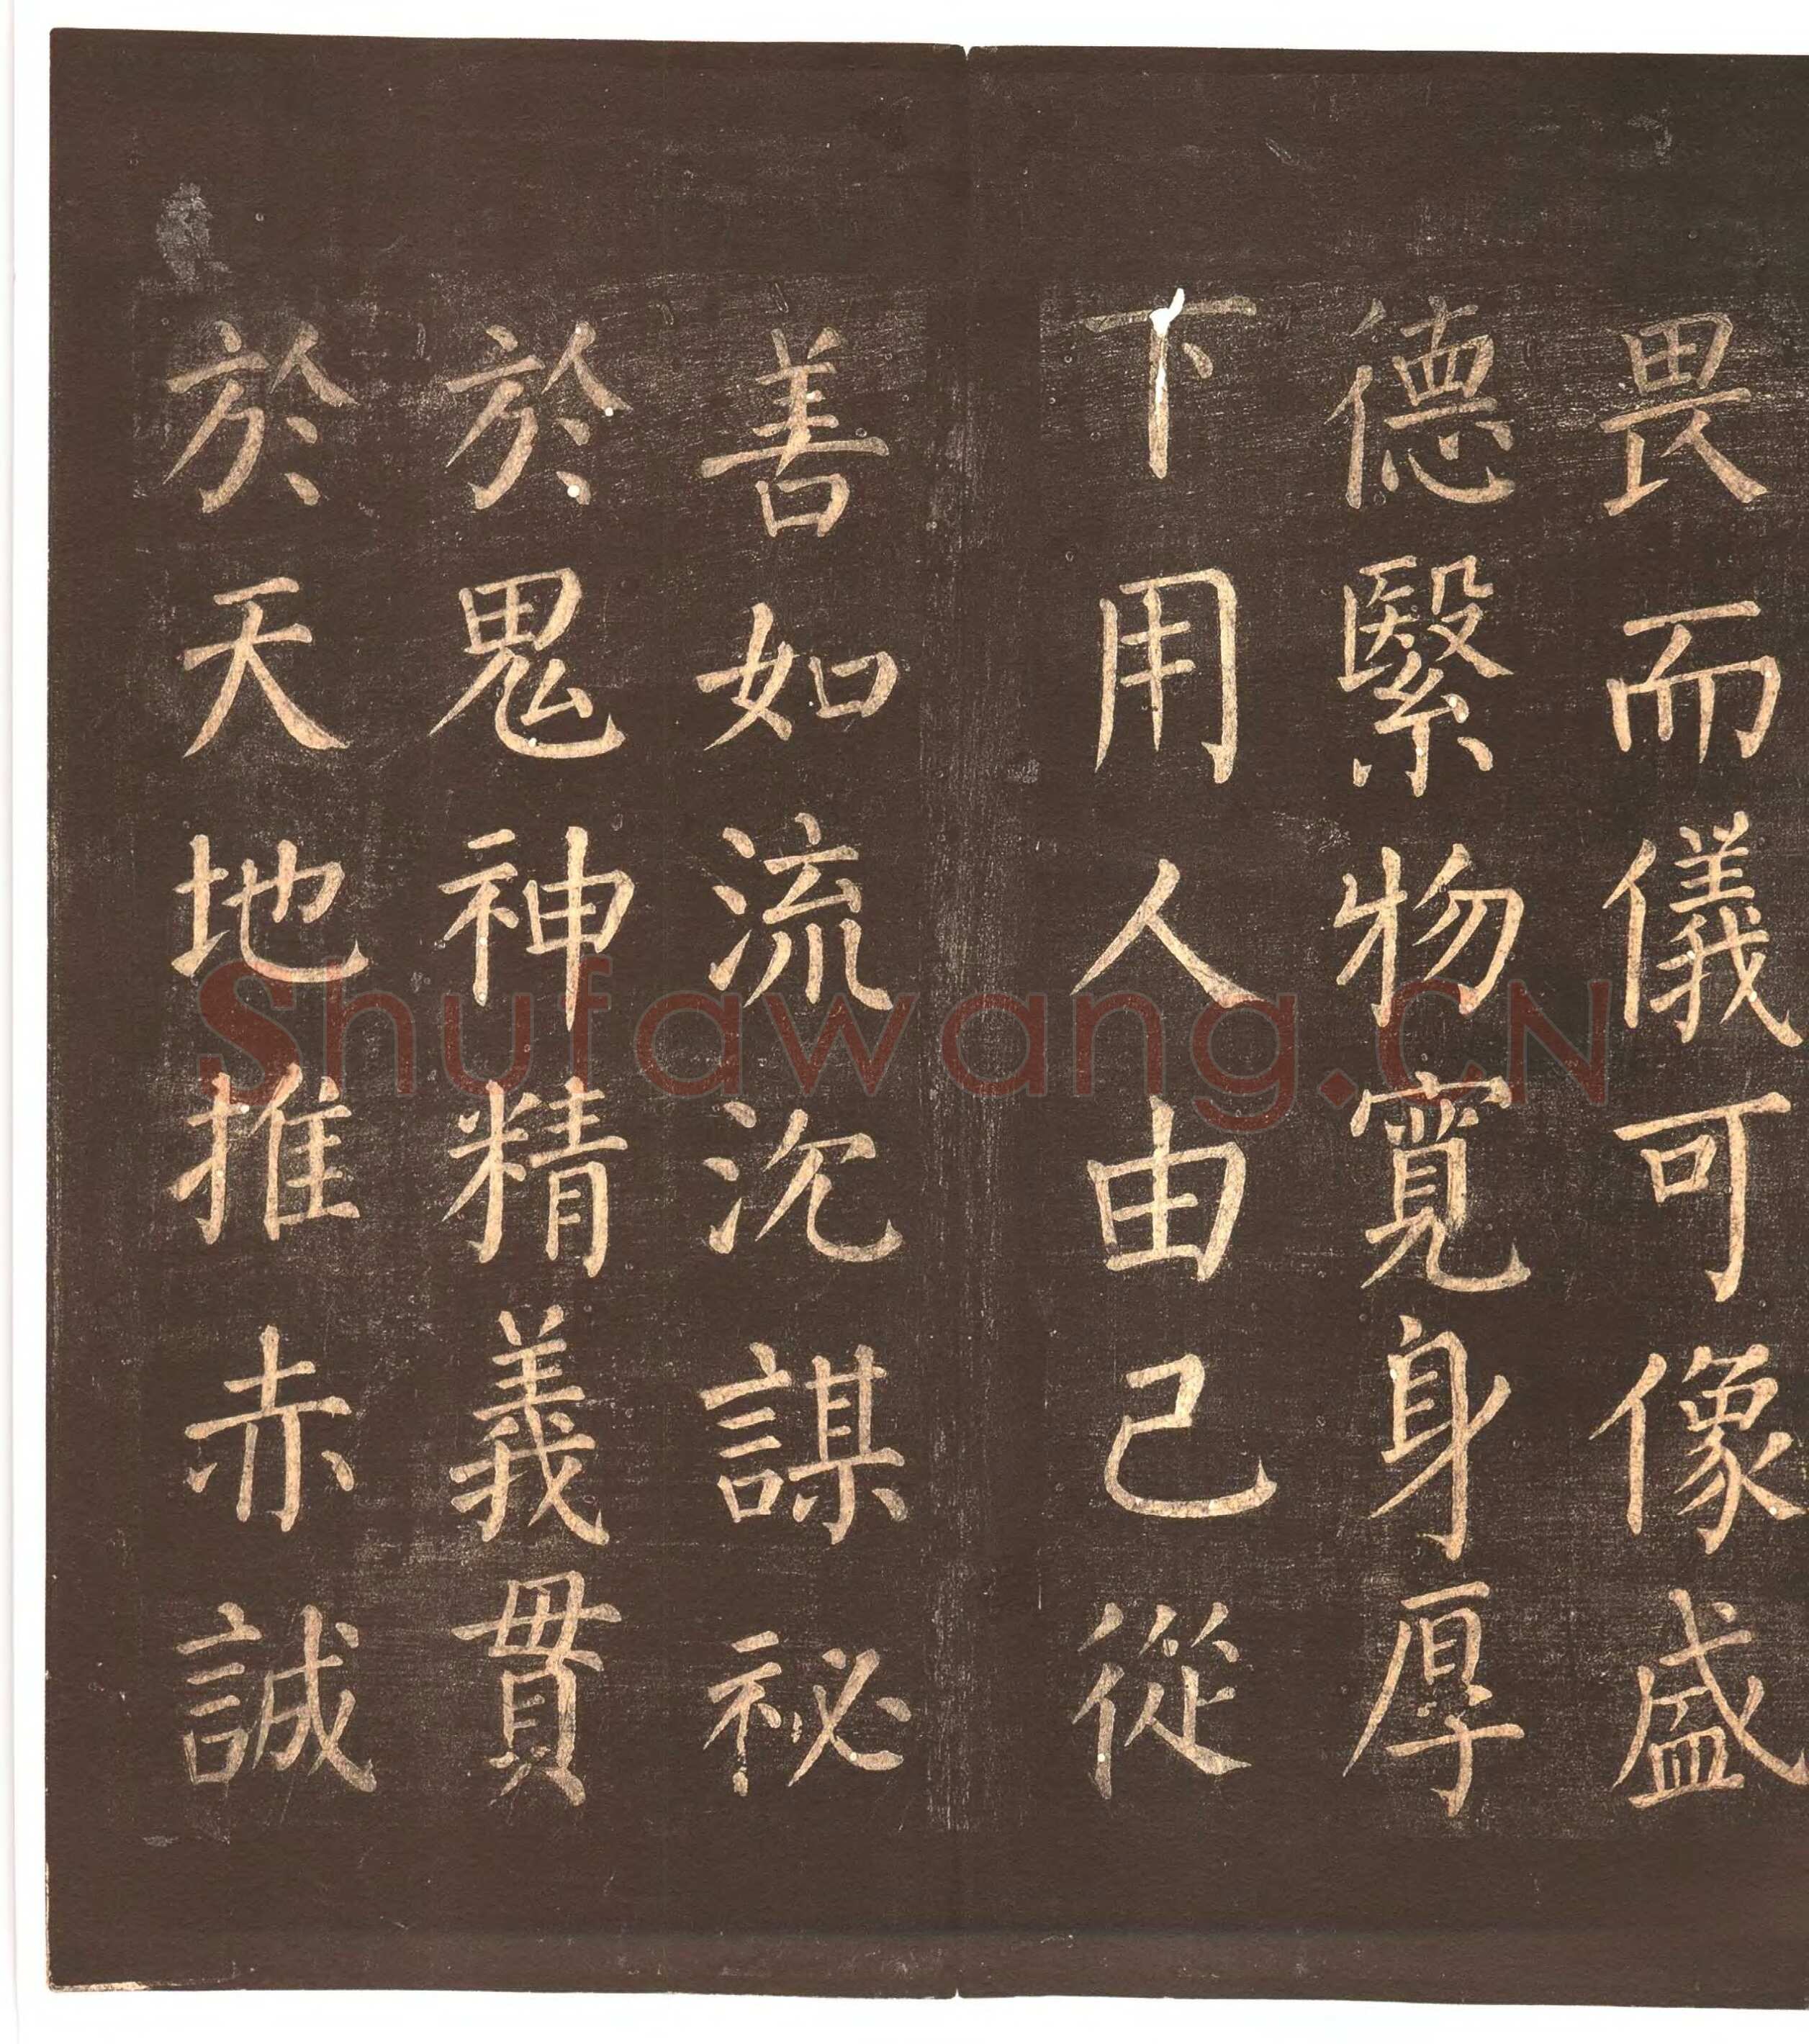 畏而儀可像盛
德緊物寬身厚
下用人由己從
善如流沉謀祕
於鬼神精義貫
於天地推赤誠
Shufawang.CN